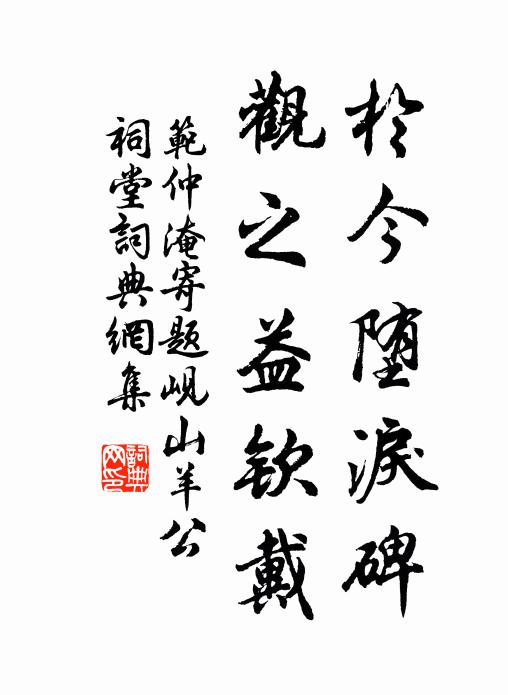 於今堕淚碑
觀之益欽戴
範仲淹寄题峴山羊公
祠堂詞典網集
詞典网印